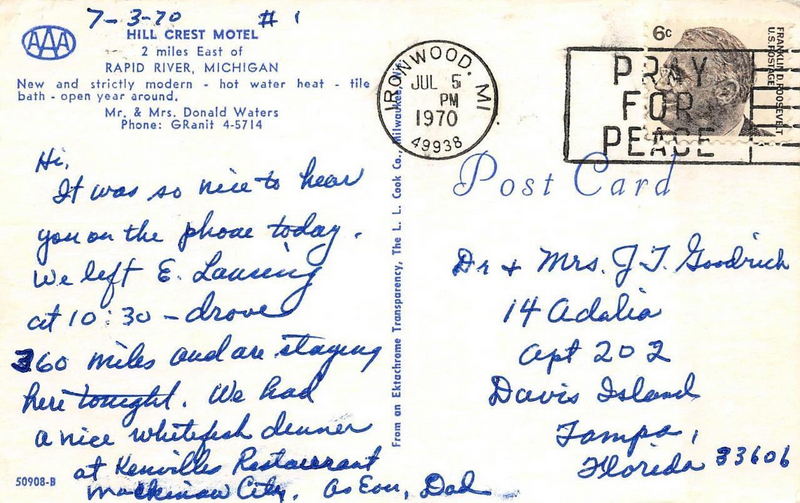 7-3-70 # 1
AAA
HILL CREST MOTEL
2 miles East of
RAPID RIVER, MICHIGAN
New and strictly modern - hot water heat - tile
bath - open year around.
Mr. & Mrs. Donald Waters
Phone: GRanit 4-5714
Hi,
It was so nice to hear
you on the phone today.
We left E. Lansing
at 10:30 - drove
360 miles and are staying
here tonight. We had
a nice whitefish dinner
at Kenvilles Restaurant
Mackinaw City. As Ever, Dad
50908-B
From an Ektachrome Transparency, The L. L. Cook Co., Milwaukee, Wis.
IRONWOOD, MI
JUL 5
PM
1970
49938
PRAY
FOR
PEACE
6c
FRANKLIN D. ROOSEVELT
U.S. POSTAGE
Post Card
Dr + Mrs. J T. Goodrich
14 Adalia
Apt 202
Davis Island
Tampa,
Florida 33606